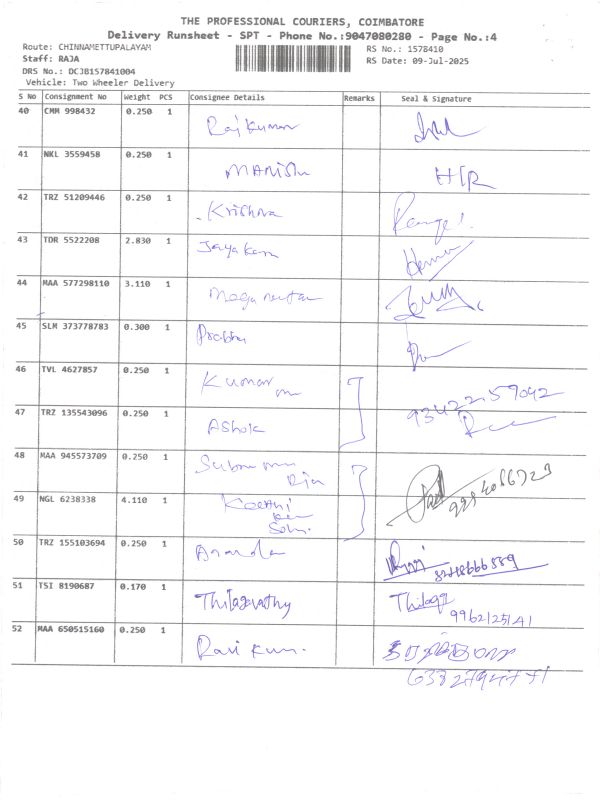 THE PROFESSIONAL COURIERS, COIMBATORE
Delivery Runsheet - SPT - Phone No.:9047080280 - Page No.:4
Route: CHINNAMETTUPALAYAM RS No.: 1578410
Staff: RAJA RS Date: 09-Jul-2025
DRS No.: DCJB157841004
Vehicle: Two Wheeler Delivery
S No Consignment No Weight PCS Consignee Details Remarks Seal & Signature
40 CMM 998432 0.250 1 Raj Kumar
41 NKL 3559458 0.250 1 MANISH H/R
42 TRZ 51209446 0.250 1 Krishna
43 TDR 5522208 2.830 1
44 MAA 577298110 3.110 1
45 SLM 373778783 0.300 1 Prabhu
46 TVL 4627857 0.250 1 Kumar
47 TRZ 135543096 0.250 1 Ashok
48 MAA 945573709 0.250 1
49 NGL 6238338 4.110 1
50 TRZ 155103694 0.250 1
51 TSI 8190687 0.170 1 Thilagavathy Thilaga
9962125141
52 MAA 650515160 0.250 1 Ravi Kum